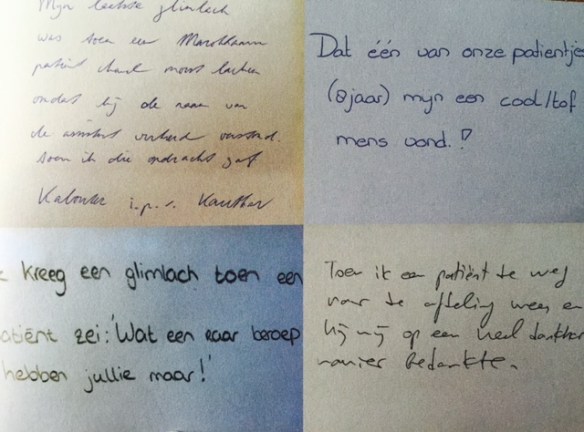 Mijn laatste glimlach
was toen een Marokkaanse
patient moest lachen
omdat hij de naam van
de assistent verkeerd verstond.
toen ik die opdracht gaf
Kabouter i.p.v. Kauthar
Dat één van onze patientjes
(8jaar) mijn een cool/tof
mens vond.!
kreeg een glimlach toen een
patiënt zei: 'Wat een raar beroep
hebben jullie maar!'
Toen ik een patiënt de weg
naar de afdeling wees en
hij mij op een heel dankbar
manier bedankte.